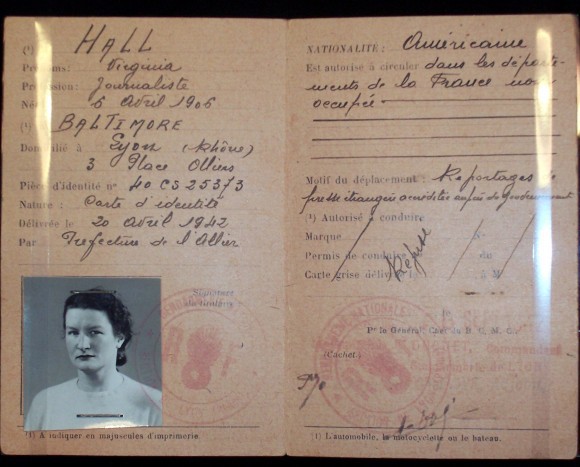 (¹) HALL
Prénoms: Virginia
Profession: Journaliste
Né 6 Avril 1906
(¹) BALTIMORE
Domicilié à Lyon (Rhône)
3 Place Ollier
Pièce d'identité nº 40 CS 25373
Nature : Carte d'identité
Délivrée le 20 Avril 1942
Par Préfecture de l'Allier
Signature
du titulaire
(1) A indiquer en majuscules d'imprimerie.
NATIONALITÉ : Américaine
Est autorisé à circuler dans les départe-
ments de la France non
occupée
Motif du déplacement : Reportages de
presse étrangère accréditée auprès du Gouvernement
(¹) Autorisé à conduire
Marque Nº
Permis de conduire du
Carte grise délivrée
Refusé
Pr le Général, Chef du
(Cachet.)
(1) L'automobile, la motocyclette ou le bateau.